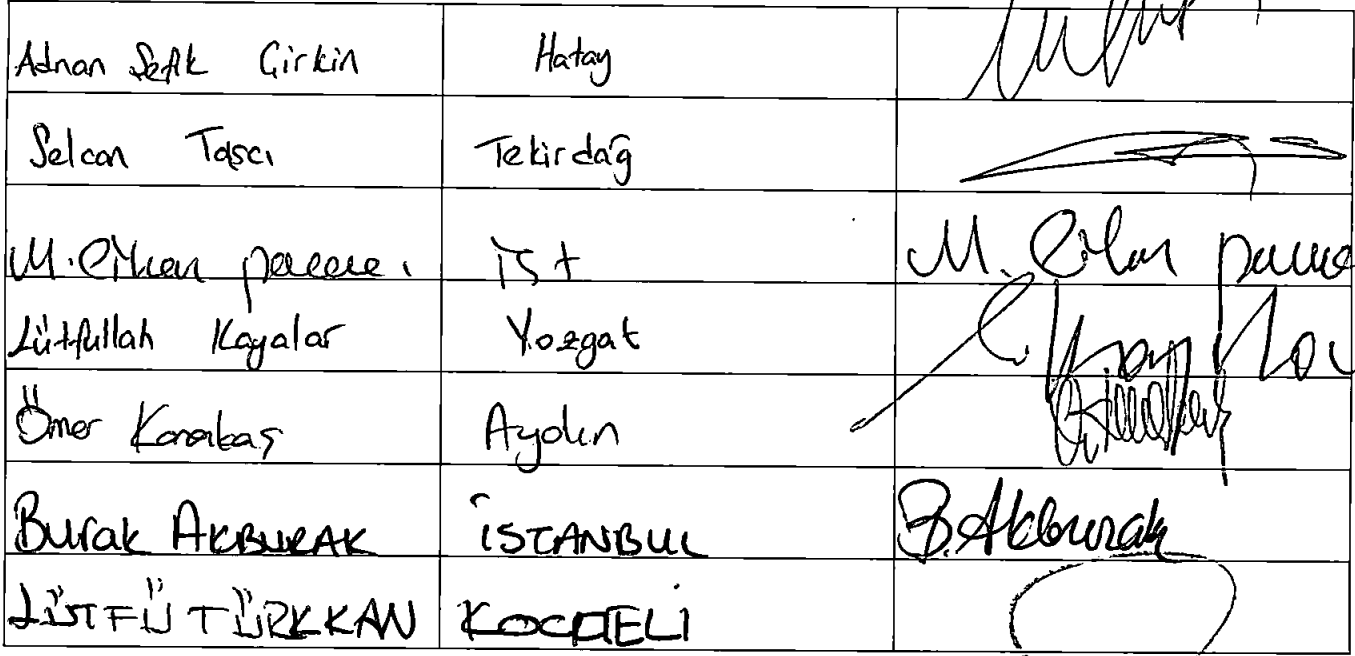 Adnan Sefik Çirkin Hatay
Selcan Taşcı Tekirdağ
M. Cihan paçacı İst M. Cihan
Lütfullah Kayalar Yozgat
Ömer Karakaş Aydın
Burak AKBURAK İSTANBUL B. Akburak
LÜTFÜ TÜRKKAN KOCAELİ